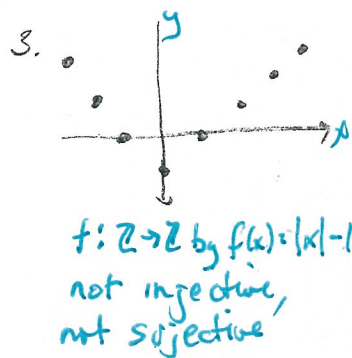 y
3.
x
f: ℤ→ℤ by f(x)=|x|-1
not injective,
not surjective